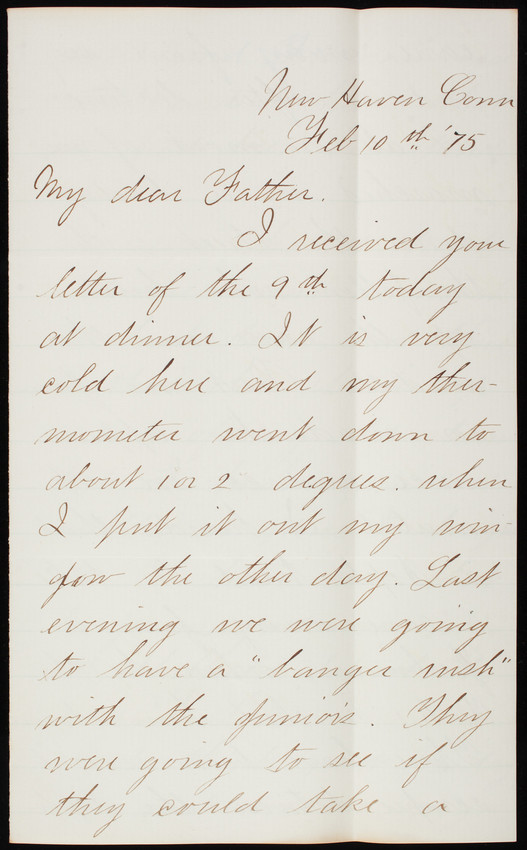 New Haven Conn
Feb 10th '75
My dear Father.
I received your
letter of the 9th today
at dinner. It is very
cold here and my ther-
mometer went down to
about 1 or 2 degrees. when
I put it out my win-
dow the other day. Last
evening we were going
to have a "banger rush"
with the Juniors. They
were going to see if
they could take a